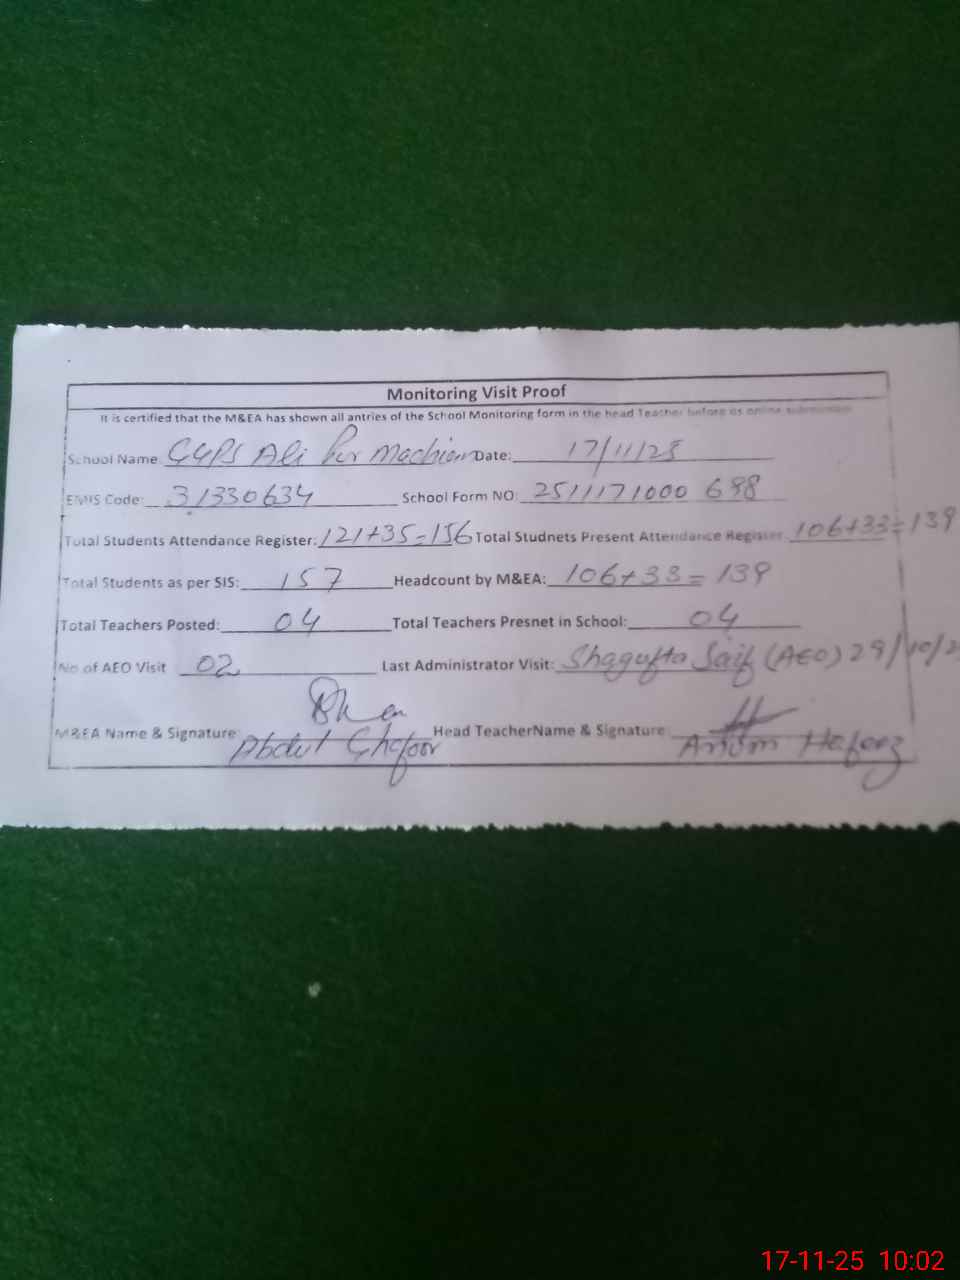 Monitoring Visit Proof
It is certified that the M&EA has shown all antries of the School Monitoring form in the head Teacher before as online submission
School Name GGPS Ali Pur Machian Date: 17/11/25
EMIS Code: 31330634 School Form NO: 2511171000 698
Total Students Attendance Register: 121+35=156 Total Studnets Present Attendance Register 106+33=139
Total Students as per SIS: 157 Headcount by M&EA: 106+33=139
Total Teachers Posted: 04 Total Teachers Presnet in School: 04
No of AEO Visit 02 Last Administrator Visit: Shagufta Saif (AEO) 29/10/2
M&EA Name & Signature Abdul Ghafoor Head TeacherName & Signature Anum Hafeez
17-11-25 10:02